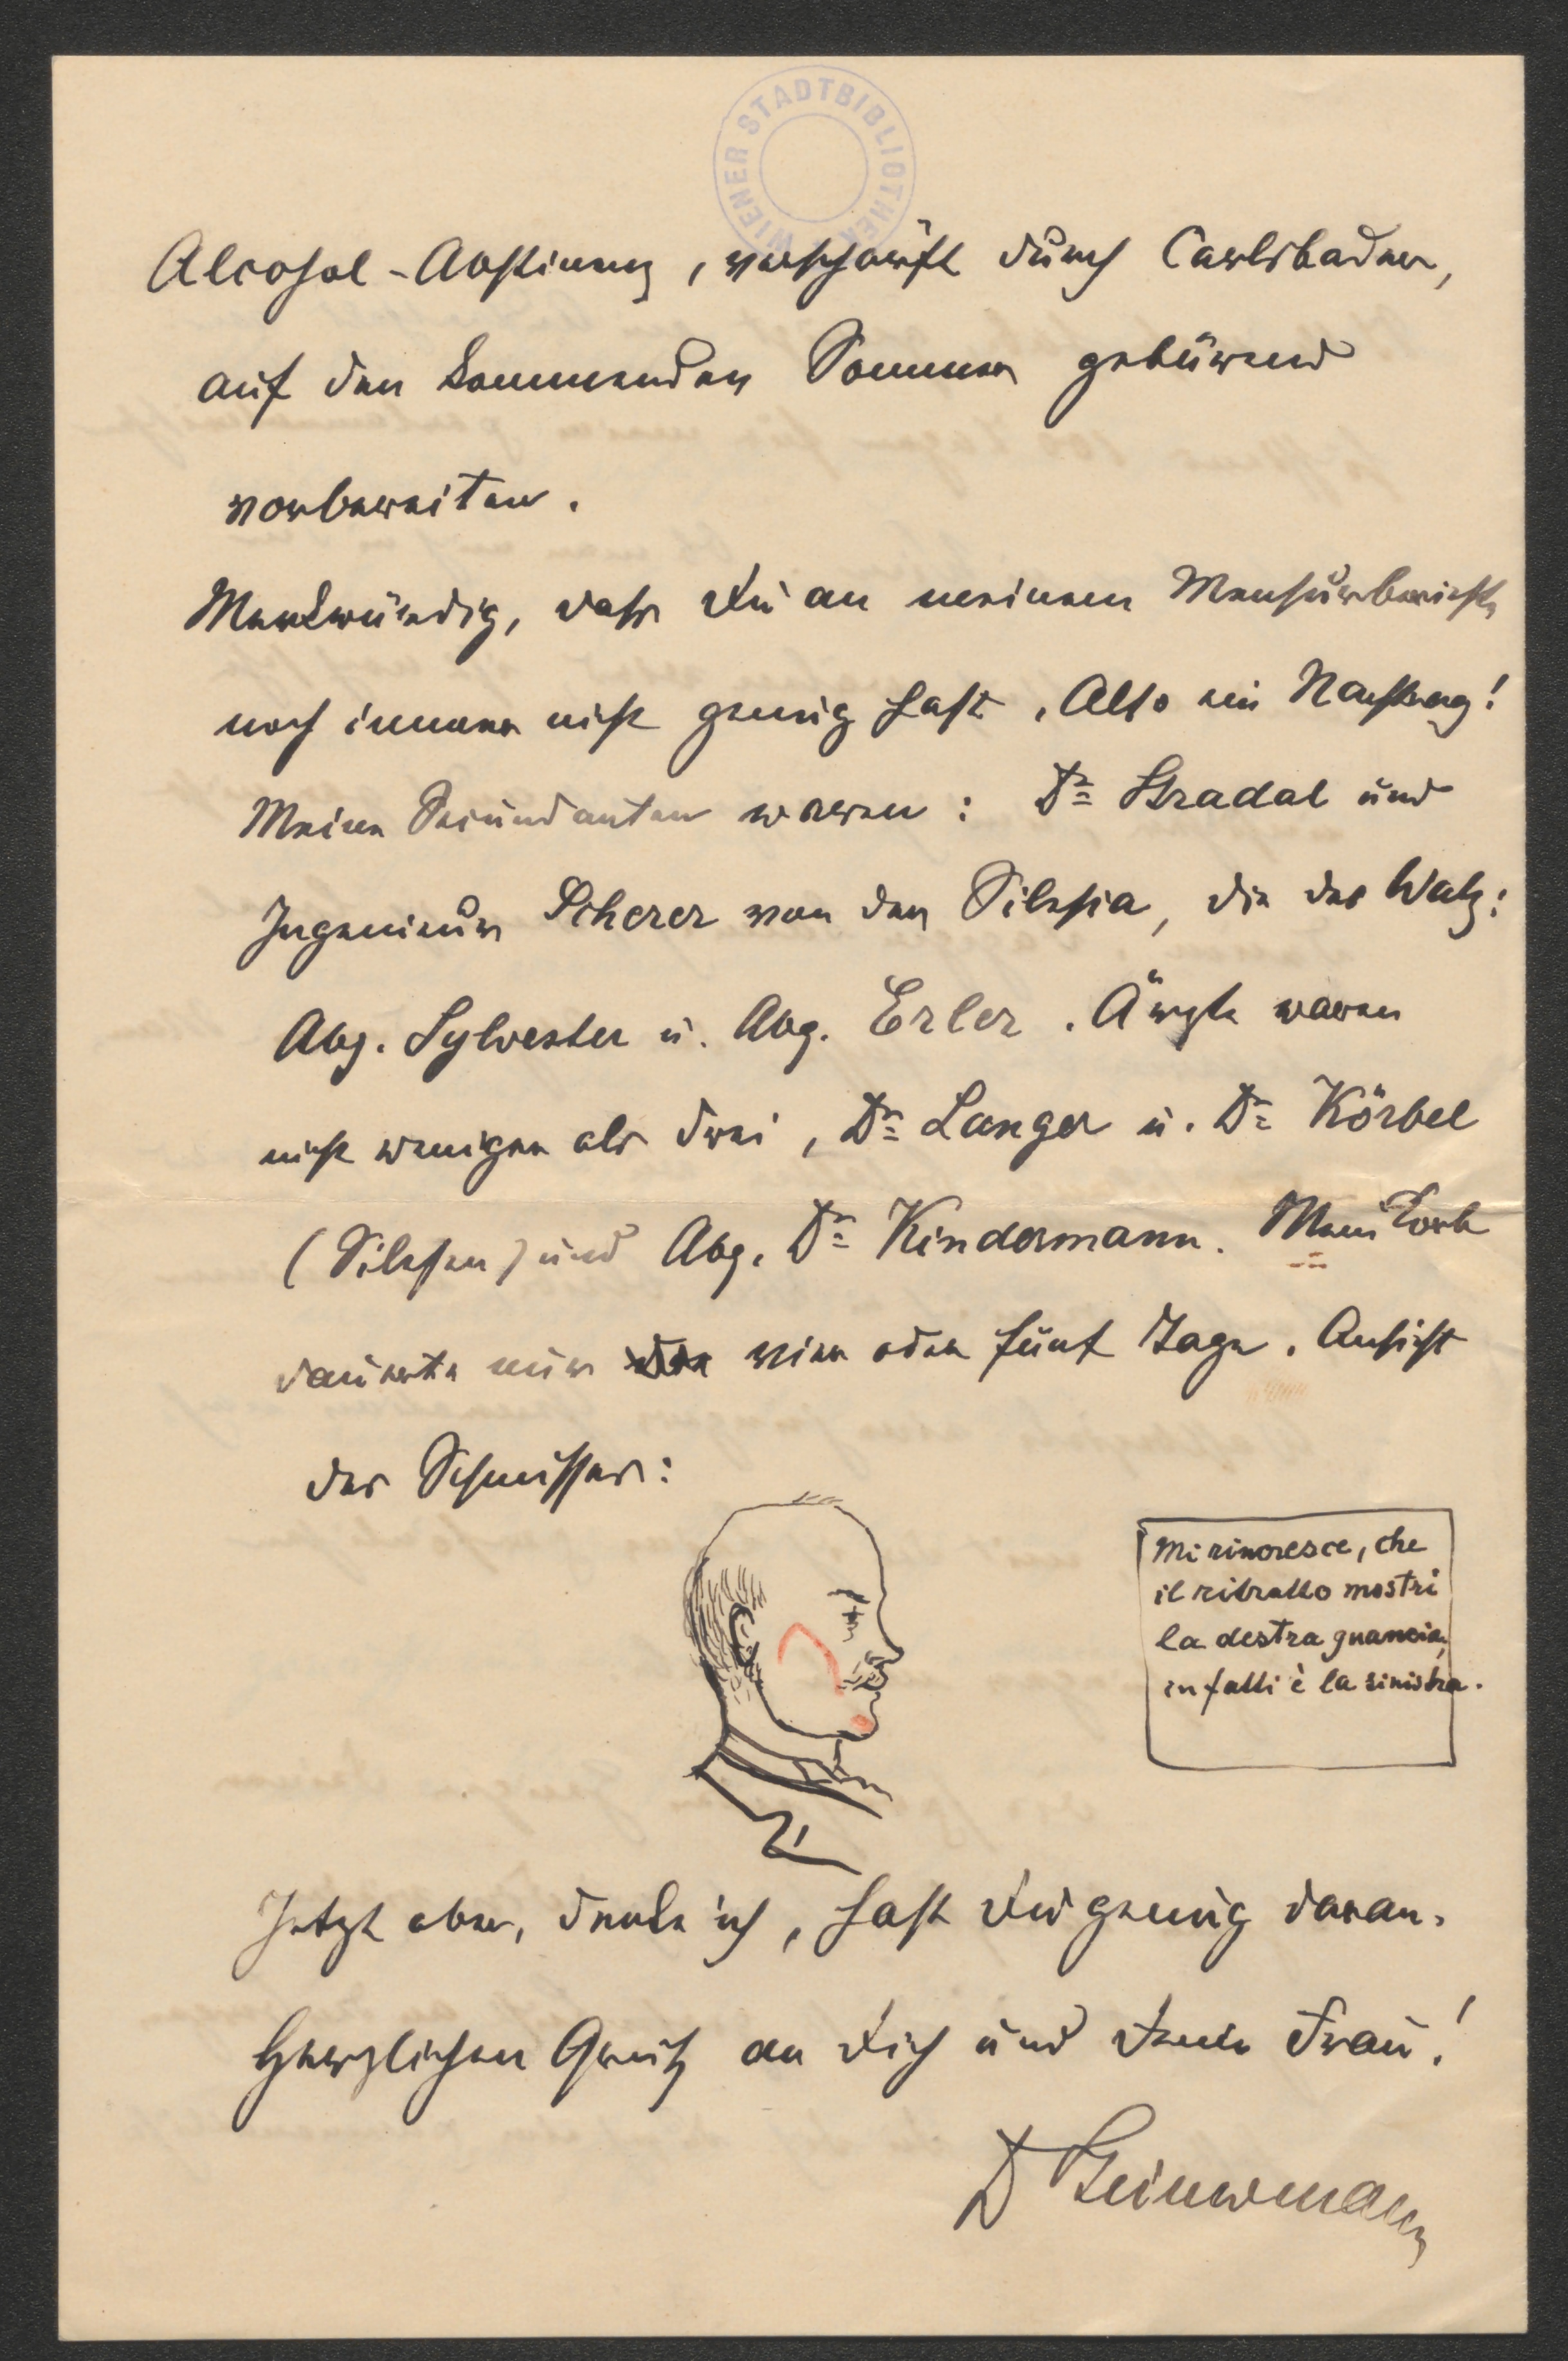 WIENER STADTBIBLIOTHEK
Alcohol-Abstinenz, verschärft durch Carlsbader,
auf den kommenden Sommer gebürend
vorbereiten.
Merkwürdig, dass Du an meinem Mensurberichte
noch immer nicht genug hast. Also ein Nachtrag!
Meine Secundanten waren: Dr Stradal und
Ingenieur Scherer von der Silesia, die des
Abg. Sylvester u. Abg. Erler. Ärzte waren
nicht weniger als drei, Dr Langer u. Dr Körbel
(Silesen) und Abg. Dr Kindermann. Mein
dauerte nur vier oder fünf Tage. Ansicht
des Schmisses:
Mi rincresce, che
il ritratto mostri
la destra guancia,
infatti è la sinistra.
Jetzt aber, denke ich, hast Du genug daran.
Herzlichen Gruß an Dich und Deine Frau!
D